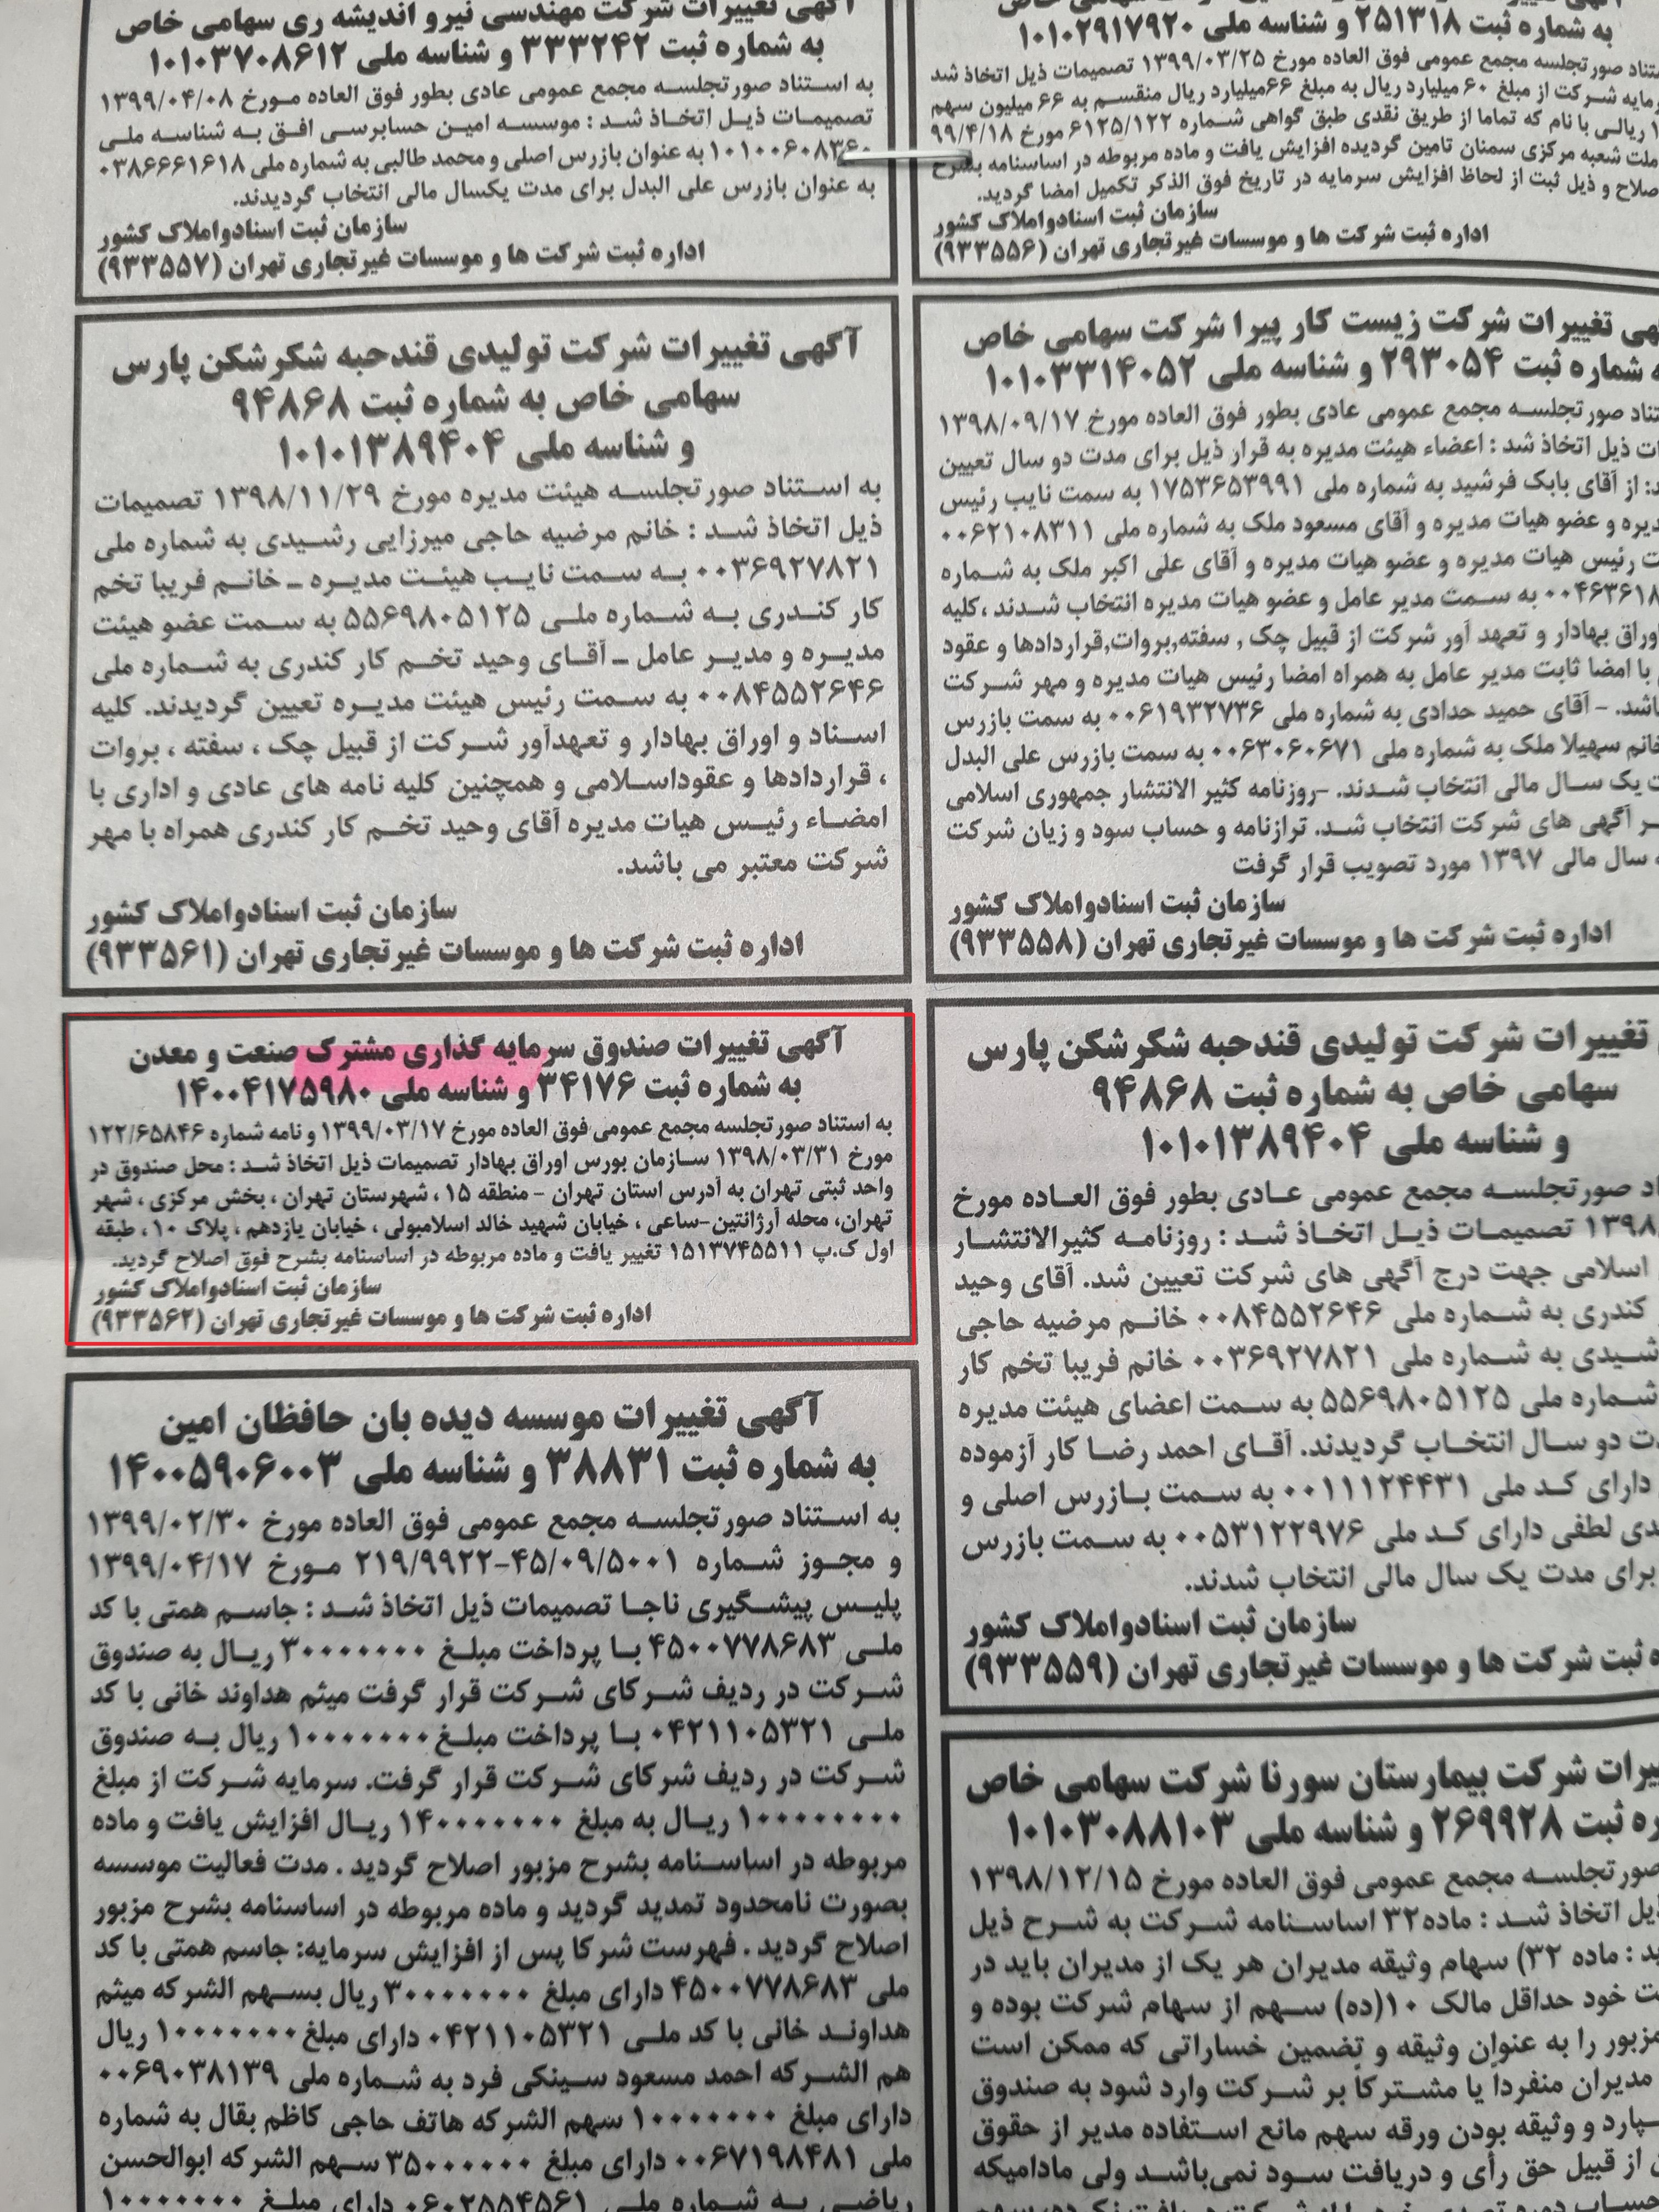 به شماره ثبت ۲۵۱۳۱۸ و شناسه ملی ۱۰۱۰۲۹۱۷۹۲۰
صورتجلسه مجمع عمومی فوق العاده مورخ ۱۳۹۹/۰۳/۲۵ تصمیمات ذیل اتخاذ شد
شرکت از مبلغ ۶۰ میلیارد ریال به مبلغ ۶۶میلیارد ریال منقسم به ۶۶ میلیون سهم
ریالی با نام که تماما از طریق نقدی طبق گواهی شماره ۶۱۲۵/۱۲۲ مورخ ۹۹/۴/۱۸
ملت شعبه مرکزی سمنان تامین گردیده افزایش یافت و ماده مربوطه در اساسنامه بشرح
و ذیل ثبت از لحاظ افزایش سرمایه در تاریخ فوق الذکر تکمیل امضا گردید.
سازمان ثبت اسنادواملاک کشور
اداره ثبت شرکت ها و موسسات غیرتجاری تهران (۹۳۳۵۵۶)
آگهی تغییرات شرکت مهندسی نیرو اندیشه ری سهامی خاص
به شماره ثبت ۳۳۳۲۴۲ و شناسه ملی ۱۰۱۰۳۷۰۸۶۱۲
به استناد صورتجلسه مجمع عمومی عادی بطور فوق العاده مورخ ۱۳۹۹/۰۴/۰۸
تصمیمات ذیل اتخاذ شد : موسسه امین حسابرسی افق به شناسه ملی
۱۰۱۰۰۶۰۸۳۶۰ به عنوان بازرس اصلی و محمد طالبی به شماره ملی ۰۳۸۶۶۶۱۶۱۸
به عنوان بازرس علی البدل برای مدت یکسال مالی انتخاب گردیدند.
سازمان ثبت اسنادواملاک کشور
اداره ثبت شرکت ها و موسسات غیرتجاری تهران (۹۳۳۵۵۷)
تغییرات شرکت زیست کار پیرا شرکت سهامی خاص
شماره ثبت ۲۹۳۰۵۴ و شناسه ملی ۱۰۱۰۳۳۱۴۰۵۲
صورتجلسه مجمع عمومی عادی بطور فوق العاده مورخ ۱۳۹۸/۰۹/۱۷
ذیل اتخاذ شد : اعضاء هیئت مدیره به قرار ذیل برای مدت دو سال تعیین
از آقای بابک فرشید به شماره ملی ۱۷۵۳۶۵۳۹۹۱ به سمت نایب رئیس
و عضو هیات مدیره و آقای مسعود ملک به شماره ملی ۰۰۶۲۱۰۸۳۱۱
رئیس هیات مدیره و عضو هیات مدیره و آقای علی اکبر ملک به شماره
به سمت مدیر عامل و عضو هیات مدیره انتخاب شدند ،کلیه
اوراق بهادار و تعهد آور شرکت از قبیل چک , سفته,بروات,قراردادها و عقود
با امضا ثابت مدیر عامل به همراه امضا رئیس هیات مدیره و مهر شرکت
- آقای حمید حدادی به شماره ملی ۰۰۶۱۹۳۲۷۳۶ به سمت بازرس
خانم سهیلا ملک به شماره ملی ۰۰۶۳۰۶۰۶۷۱ به سمت بازرس علی البدل
یک سال مالی انتخاب شدند. -روزنامه کثیر الانتشار جمهوری اسلامی
آگهی های شرکت انتخاب شد. ترازنامه و حساب سود و زیان شرکت
سال مالی ۱۳۹۷ مورد تصویب قرار گرفت
سازمان ثبت اسنادواملاک کشور
اداره ثبت شرکت ها و موسسات غیرتجاری تهران (۹۳۳۵۵۸)
آگهی تغییرات شرکت تولیدی قندحبه شکرشکن پارس
سهامی خاص به شماره ثبت ۹۴۸۶۸
و شناسه ملی ۱۰۱۰۱۳۸۹۴۰۴
به استناد صورتجلسه هیئت مدیره مورخ ۱۳۹۸/۱۱/۲۹ تصمیمات
ذیل اتخاذ شد : خانم مرضیه حاجی میرزایی رشیدی به شماره ملی
۰۰۳۶۹۲۷۸۲۱ به سمت نایب هیئت مدیره ـ خانم فریبا تخم
کار کندری به شماره ملی ۵۵۶۹۸۰۵۱۲۵ به سمت عضو هیئت
مدیره و مدیر عامل ـ آقای وحید تخم کار کندری به شماره ملی
۰۰۸۴۵۵۲۶۴۶ به سمت رئیس هیئت مدیره تعیین گردیدند. کلیه
اسناد و اوراق بهادار و تعهدآور شرکت از قبیل چک ، سفته ، بروات
، قراردادها و عقوداسلامی و همچنین کلیه نامه های عادی و اداری با
امضاء رئیس هیات مدیره آقای وحید تخم کار کندری همراه با مهر
شرکت معتبر می باشد.
سازمان ثبت اسنادواملاک کشور
اداره ثبت شرکت ها و موسسات غیرتجاری تهران (۹۳۳۵۶۱)
تغییرات شرکت تولیدی قندحبه شکرشکن پارس
سهامی خاص به شماره ثبت ۹۴۸۶۸
و شناسه ملی ۱۰۱۰۱۳۸۹۴۰۴
صورتجلسه مجمع عمومی عادی بطور فوق العاده مورخ
تصمیمات ذیل اتخاذ شد : روزنامه کثیرالانتشار
اسلامی جهت درج آگهی های شرکت تعیین شد. آقای وحید
کندری به شماره ملی ۰۰۸۴۵۵۲۶۴۶ خانم مرضیه حاجی
به شماره ملی ۰۰۳۶۹۲۷۸۲۱ خانم فریبا تخم کار
شماره ملی ۵۵۶۹۸۰۵۱۲۵ به سمت اعضای هیئت مدیره
دو سال انتخاب گردیدند. آقای احمد رضا کار آزموده
دارای کد ملی ۰۰۱۱۱۲۴۴۳۱ به سمت بازرس اصلی و
لطفی دارای کد ملی ۰۰۵۳۱۲۲۹۷۶ به سمت بازرس
برای مدت یک سال مالی انتخاب شدند.
سازمان ثبت اسنادواملاک کشور
ثبت شرکت ها و موسسات غیرتجاری تهران (۹۳۳۵۵۹)
آگهی تغییرات صندوق سرمایه گذاری مشترک صنعت و معدن
به شماره ثبت ۳۴۱۷۶ و شناسه ملی ۱۴۰۰۴۱۷۵۹۸۰
به استناد صورتجلسه مجمع عمومی فوق العاده مورخ ۱۳۹۹/۰۳/۱۷ و نامه شماره ۱۲۲/۶۵۸۴۶
مورخ ۱۳۹۸/۰۳/۳۱ سازمان بورس اوراق بهادار تصمیمات ذیل اتخاذ شد : محل صندوق در
واحد ثبتی تهران به آدرس استان تهران - منطقه ۱۵ ، شهرستان تهران ، بخش مرکزی ، شهر
تهران، محله آرژانتین-ساعی ، خیابان شهید خالد اسلامبولی ، خیابان یازدهم ، پلاک ۱۰ ، طبقه
اول ک.پ ۱۵۱۳۷۴۵۵۱۱ تغییر یافت و ماده مربوطه در اساسنامه بشرح فوق اصلاح گردید.
سازمان ثبت اسنادواملاک کشور
اداره ثبت شرکت ها و موسسات غیرتجاری تهران (۹۳۳۵۶۲)
شرکت بیمارستان سورنا شرکت سهامی خاص
ثبت ۲۶۹۹۲۸ و شناسه ملی ۱۰۱۰۳۰۸۸۱۰۳
صورتجلسه مجمع عمومی فوق العاده مورخ ۱۳۹۸/۱۲/۱۵
اتخاذ شد : ماده۳۲ اساسنامه شرکت به شرح ذیل
: ماده ۳۲) سهام وثیقه مدیران هر یک از مدیران باید در
خود حداقل مالک ۱۰(ده) سهم از سهام شرکت بوده و
مزبور را به عنوان وثیقه و تضمین خساراتی که ممکن است
مدیران منفرداً یا مشترکاً بر شرکت وارد شود به صندوق
و وثیقه بودن ورقه سهم مانع استفاده مدیر از حقوق
از قبیل حق رأی و دریافت سود نمی‌باشد ولی مادامیکه
آگهی تغییرات موسسه دیده بان حافظان امین
به شماره ثبت ۳۸۸۳۱ و شناسه ملی ۱۴۰۰۵۹۰۶۰۰۳
به استناد صورتجلسه مجمع عمومی فوق العاده مورخ ۱۳۹۹/۰۲/۳۰
و مجوز شماره ۲۱۹/۹۹۲۲-۴۵/۰۹/۵۰۰۱ مورخ ۱۳۹۹/۰۴/۱۷
پلیس پیشگیری ناجا تصمیمات ذیل اتخاذ شد : جاسم همتی با کد
ملی ۴۵۰۰۷۷۸۶۸۳ با پرداخت مبلغ ۳۰۰۰۰۰۰۰ ریال به صندوق
شرکت در ردیف شرکای شرکت قرار گرفت میثم هداوند خانی با کد
ملی ۰۴۲۱۱۰۵۳۲۱ با پرداخت مبلغ ۱۰۰۰۰۰۰۰ ریال به صندوق
شرکت در ردیف شرکای شرکت قرار گرفت. سرمایه شرکت از مبلغ
۱۰۰۰۰۰۰۰۰ ریال به مبلغ ۱۴۰۰۰۰۰۰۰ ریال افزایش یافت و ماده
مربوطه در اساسنامه بشرح مزبور اصلاح گردید . مدت فعالیت موسسه
بصورت نامحدود تمدید گردید و ماده مربوطه در اساسنامه بشرح مزبور
اصلاح گردید . فهرست شرکا پس از افزایش سرمایه: جاسم همتی با کد
ملی ۴۵۰۰۷۷۸۶۸۳ دارای مبلغ ۳۰۰۰۰۰۰۰ ریال بسهم الشرکه میثم
هداوند خانی با کد ملی ۰۴۲۱۱۰۵۳۲۱ دارای مبلغ ۱۰۰۰۰۰۰۰ ریال
هم الشرکه احمد مسعود سینکی فرد به شماره ملی ۰۰۶۹۰۳۸۱۳۹
دارای مبلغ ۱۰۰۰۰۰۰۰ سهم الشرکه هاتف حاجی کاظم بقال به شماره
ملی ۰۰۶۷۱۹۸۴۸۱ دارای مبلغ ۳۵۰۰۰۰۰۰ سهم الشرکه ابوالحسن
ریاضی به شماره ملی ۰۶۰۲۵۵۴۵۶۱ دارای مبلغ